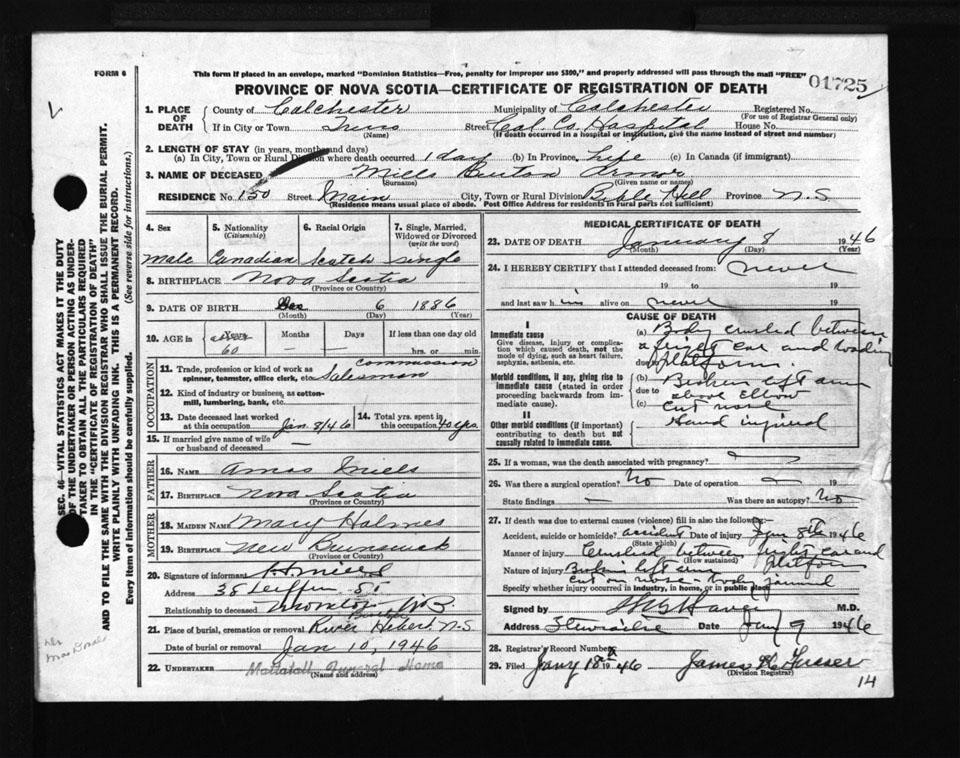 FORM 6
This form if placed in an envelope, marked "Dominion Statistics—Free, penalty for improper use $300," and properly addressed will pass through the mail "FREE"
01725
PROVINCE OF NOVA SCOTIA—CERTIFICATE OF REGISTRATION OF DEATH
1. PLACE OF DEATH County of Colchester Municipality of Colchester Registered No.
(For use of Registrar General only)
If in City or Town Truro Street Col. Co. Hospital House No.
(Name) (If death occurred in a hospital or institution, give the name instead of street and number)
2. LENGTH OF STAY (in years, months and days)
(a) In City, Town or Rural Division where death occurred 1 day (b) In Province Life (c) In Canada (if immigrant)
3. NAME OF DECEASED Mills Burton Armor
(Surname) (Given name or names)
RESIDENCE No. 150 Street Main City, Town or Rural Division Bible Hill Province N.S
(Residence means usual place of abode. Post Office Address for residents in rural parts not sufficient)
4. Sex
male
5. Nationality
(Citizenship)
Canadian
6. Racial Origin
Scotch
7. Single, Married, Widowed or Divorced
(write the word)
Single
8. BIRTHPLACE Nova Scotia
(Province or Country)
9. DATE OF BIRTH Dec 6 1886
(Month) (Day) (Year)
10. AGE in Years Months Days If less than one day old
60 — — hrs. or min.
OCCUPATION
11. Trade, profession or kind of work as spinner, teamster, office clerk, etc. Commission Salesman
12. Kind of industry or business, as cotton-mill, lumbering, bank, etc.
13. Date deceased last worked at this occupation Jan 8/46
14. Total yrs. spent in this occupation 40 yrs.
15. If married give name of wife or husband of deceased —
FATHER
16. NAME Amos Mills
17. BIRTHPLACE Nova Scotia
MOTHER
18. MAIDEN NAME Mary Holmes
19. BIRTHPLACE New Brunswick
(Province or Country)
20. Signature of informant
Address 38 St.
Relationship to deceased Moncton N.B.
21. Place of burial, cremation or removal River Hebert N.S
Date of burial or removal Jan 10, 1946
22. UNDERTAKER Mattatall Funeral Home
(Name and address)
MEDICAL CERTIFICATE OF DEATH
23. DATE OF DEATH January 8 1946
(Month) (Day) (Year)
24. I HEREBY CERTIFY that I attended deceased from: never
19 to 19
and last saw him alive on never 19
CAUSE OF DEATH
I
Immediate cause
Give disease, injury or complication which caused death, not the mode of dying, such as heart failure, asphyxia, asthenia, etc.
(a) Body crushed between a freight car and loading platform.
due to
Morbid conditions, if any, giving rise to immediate cause (stated in order proceeding backwards from immediate cause).
(b) Broken left arm above elbow
due to
(c) Cut nose
II
Other morbid conditions (if important) contributing to death but not causally related to immediate cause.
Hand injured
25. If a woman, was the death associated with pregnancy?
26. Was there a surgical operation? No Date of operation — 19
State findings — Was there an autopsy? No
27. If death was due to external causes (violence) fill in also the following:—
Accident, suicide or homicide? accident Date of injury Jan 8th 1946
(State which)
Manner of injury Crushed between freight car and platform
(How sustained)
Nature of injury Broken left arm cut on nose - body jammed
Specify whether injury occurred in industry, in home, or in public place
Signed by M.D.
Address Date Jany 9 1946
28. Registrar's Record Number
29. Filed Jany 18th 1946
(Division Registrar)
14
SEC. 46—VITAL STATISTICS ACT MAKES IT THE DUTY OF THE UNDERTAKER OR PERSON ACTING AS UNDERTAKER TO OBTAIN ALL THE PARTICULARS REQUIRED IN THE "CERTIFICATE OF REGISTRATION OF DEATH" AND TO FILE THE SAME WITH THE DIVISION REGISTRAR WHO SHALL ISSUE THE BURIAL PERMIT.
WRITE PLAINLY WITH UNFADING INK. THIS IS A PERMANENT RECORD.
Every item of information should be carefully supplied. (See reverse side for instructions.)